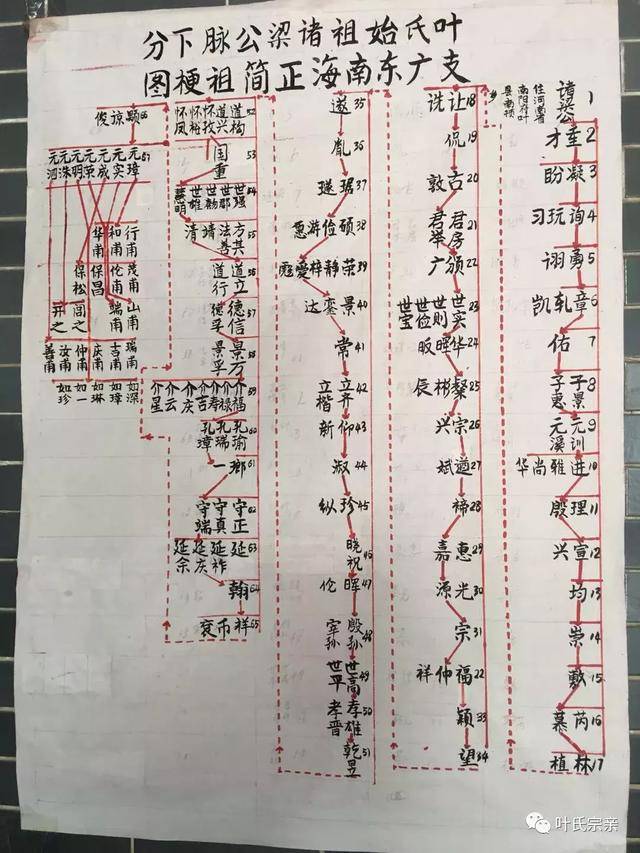 叶氏始祖诸梁公脉下分
支广东南海正简祖梗图
1 诸梁公
住河南省南阳府叶县南顿乡
2 垂 才
3 凝 盼
4 询 玩 习
5 勇 诩
6 章 轧 凯
7 佑
8 子景 子惠
9 元训 元溪
10 进 雅 尚 华
11 理 殷
12 宣 兴
13 均
14 崇
15 敷
16 芮 慕
17 林 植
18 让 诜
19 侃
20 古 敦
21 君房 君举
22 颁 广
23 世实 世则 世俭 世宝
24 华 晖 昄
25 粲 彬 辰
26 宗 兴
27 遒 斌
28 稀
29 惠 嘉
30 光 源
31 宗
22 福 仲 祥
33 颖
34 望
35 遂
36 胤
37 琚 璲
38 硕 俭 游 愿
39 荣 静 梓 爱
40 景 銮 达
41 常
42 立齐 立楷
43 仰 新
44 淑
45 珍 纵
46 晓祝
47 晖 伦
48 殷孙 宰孙
49 世高 世平
50 孝雄 孝晋
51 乾昱
52 道构 道兴 怀孜 怀裕 怀凤
53 国重
54 世强 世郡 世杨 世雄 慧明
55 方共 法善 靖 清
56 道立 道行
57 德信 德孚
58 景万 景孚
59 介福 介禄 介寿 介吉 介庆 介云 介星
60 孔瑜 孔瑞 孔璋
61 瑯 一
62 守正 守真 守端
63 延 延祚 延庆 延余
64 翰
65 祥 币 衮
66 颢 谅 俊
67 元璋 元实 元咸 元荣 元明 元洙 元泗
行南 和南 华南
茂南 伦南 保昌 保松
山南 端南 闾之 开之
瑞南 吉南 庆南 仲南 汝南 善南
如深 如璋 如琳 如一 如珍
叶氏宗亲